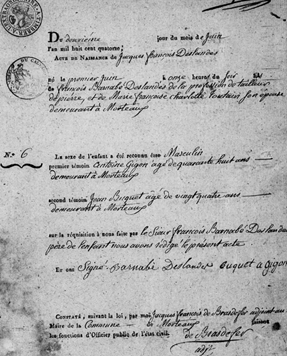 Du deuxieme jour du mois de Juin
l'an mil huit cent quatorze
ACTE DE NAISSANCE de Jacques francois Deslandes
né le premier Juin à onze heures du soir
de francois Barnabé Deslandes de la profession de tailleur
de pierre, et de Marie francoise charlotte son épouse
demeurant à Morteaux
N.° 6
Le sexe de l'enfant a été reconnu être Masculin
premier témoin Antoine Gigon age de quarante huit ans
demeurant à Morteaux
second témoin Jean Buquet age de vingt quatre ans
demeurant à Morteaux
sur la réquisition à nous faite par le Sieur francois Barnabé Deslandes
père de l'enfant nous avons rédigé le présent acte
Et ont Signé Barnabé Deslandes Buquet a Gigon
CONSTATÉ, suivant la loi, par moi Jacques francois de Brasdefer adjoint au
Maire de la Commune de Morteaux faisant
les fonctions d'Officier public de l'état civil.
de Brasdefer
adjt